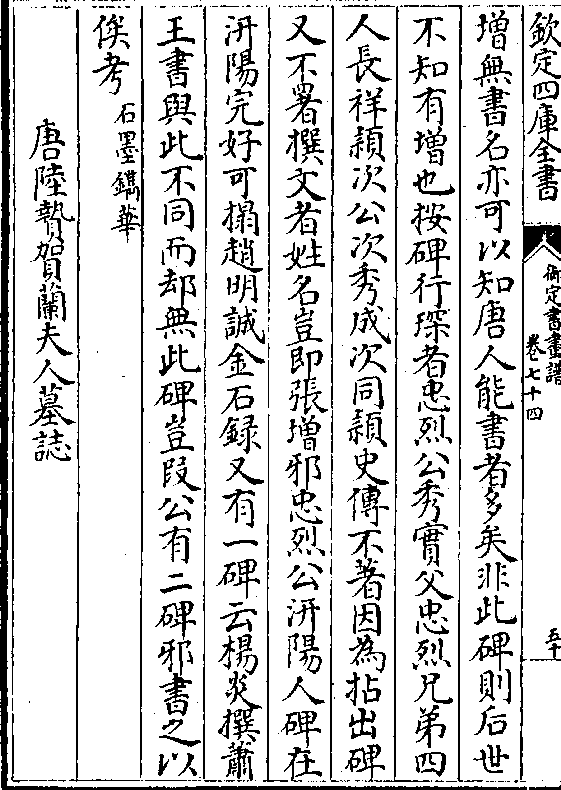 欽定四庫全書
御定書畫譜
卷七十四
五十
增無書名亦可以知唐人能書者多矣非此碑則后世
不知有增也按碑行琛者忠烈公秀實父忠烈兄弟四
人長祥頴次公次秀成次同頴史傳不著因為拈出碑
又不署撰文者姓名豈即張增邪忠烈公汧陽人碑在
汧陽完好可搨趙明誠金石録又有一碑云楊炎撰蕭
王書與此不同而却無此碑豈段公有二碑邪書之以
俟考石墨鐫華
唐陸贄賀蘭夫人墓誌